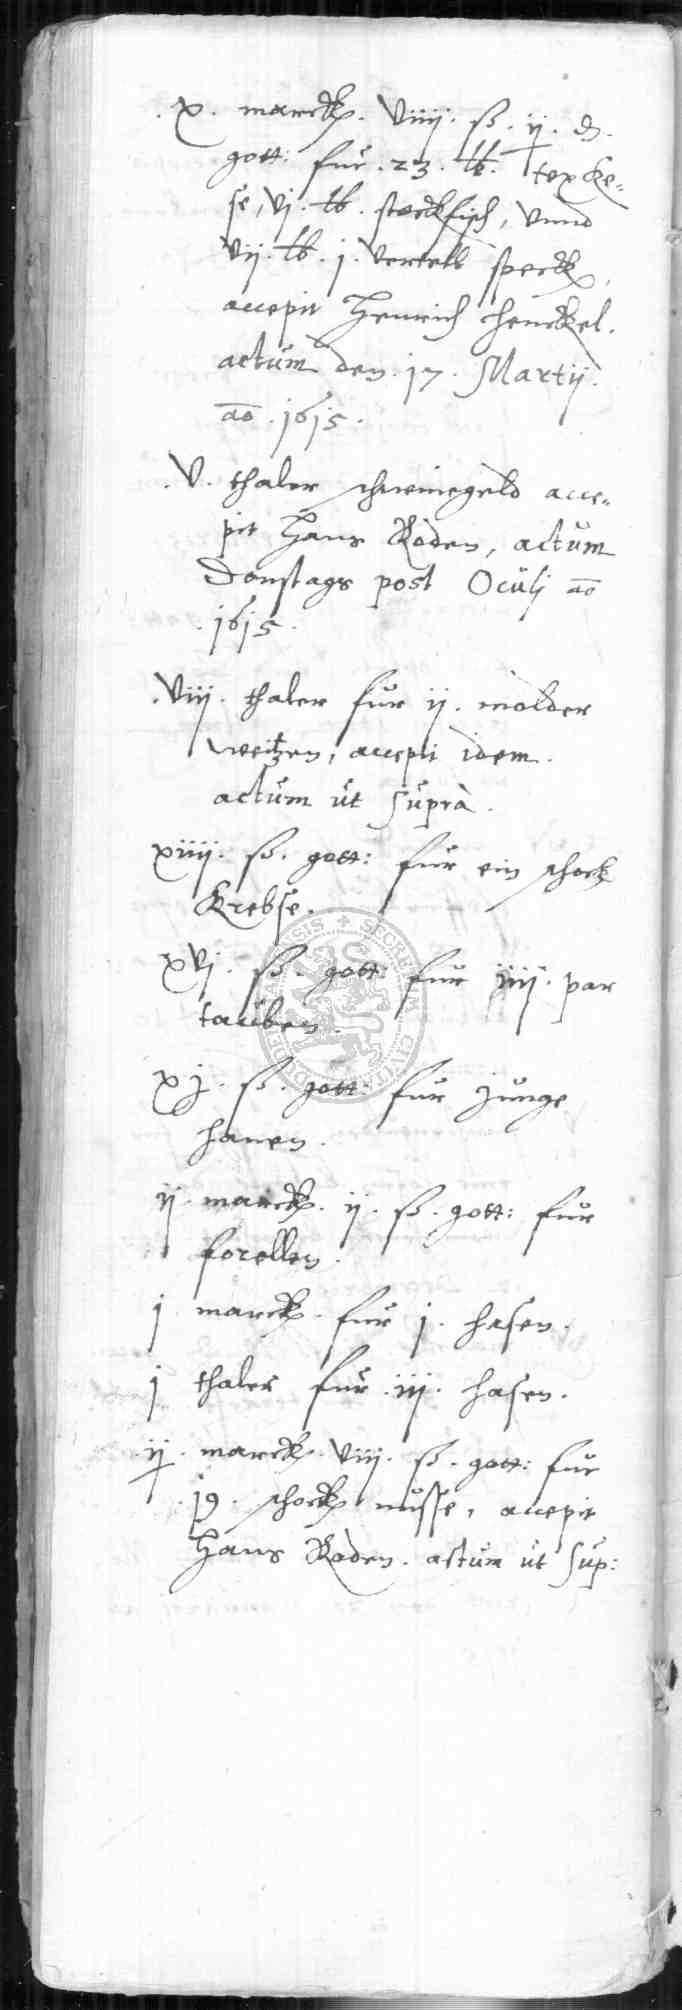 .x. marck. viiij. ß. ij. d.
gott: für .23. lb. texke-
se, vj. lb. stockfisch, vnnd
vij. lb. j. vertell speck,
accepit Henrich Henckel.
actum den .17. Martij.
ao .1615.
.V. thaler schweinegeld acce-
pit Hans Roden, actum
Donstags post Oculi ao
.1615.
.viij. thaler für ij. molder
weitzen, accepit idem.
actum ut suprà.
xiiij. ß. gott: für ein schock
Krebse.
xvj. ß. gott: für iiij. par
tauben.
xj. ß. gott: für junge
hanen.
ij. marck. ij. ß. gott: für
forellen.
j marck. für j. hasen.
j thaler für .iij. hasen.
.ij. marck. viij. ß. gott: für
.19. schock nüsse, accepit
Hans Roden. actum ut sup:
SECRETUM CIVITATIS